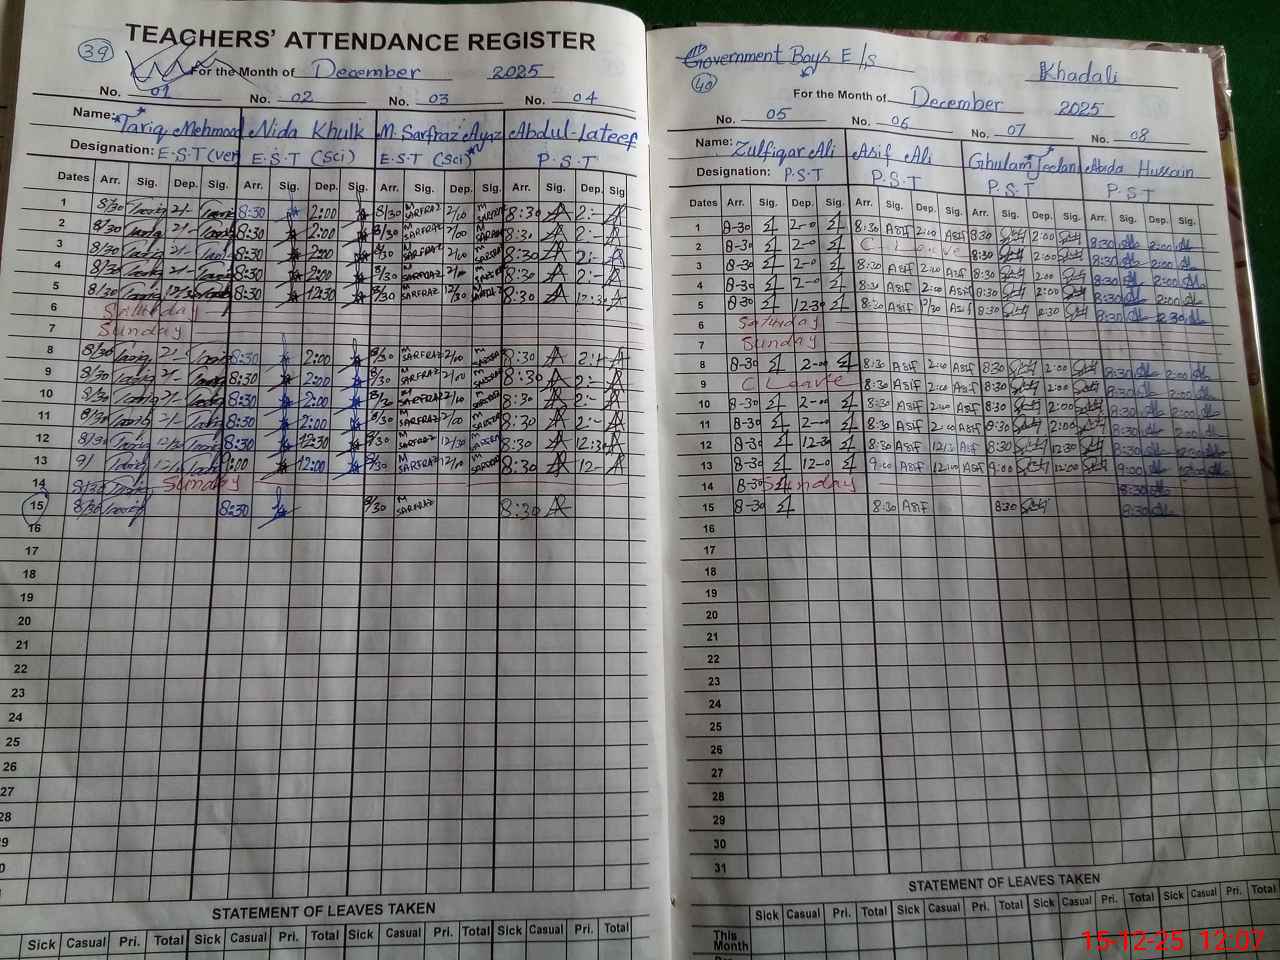 39
TEACHERS' ATTENDANCE REGISTER
For the Month of December 2025
No. 01 No. 02 No. 03 No. 04
Name: Tariq Mehmood Nida Khulk M. Sarfraz Ayaz Abdul-Lateef
Designation: E.S.T (ver) E.S.T (Sci) E.S.T (Sci) P.S.T
Dates Arr. Sig. Dep. Sig. Arr. Sig. Dep. Sig. Arr. Sig. Dep. Sig. Arr. Sig. Dep. Sig
1 8/30 Tariq 2/- Tariq 8:30 2:00 8/30 M SARFRAZ 2/00 M SARFRAZ 8:30 2:-
2 8/30 Tariq 2/- Tariq 8:30 2:00 8/30 M SARFRAZ 2/00 M SARFRAZ 8:30 2:-
3 8/30 Tariq 2/- Tariq 8:30 2:00 8/30 M SARFRAZ 2/00 M SARFRAZ 8:30 2:-
4 8/30 Tariq 2/- Tariq 8:30 2:00 8/30 M SARFRAZ 2/00 M SARFRAZ 8:30 2:-
5 8/30 Tariq 12/30 Tariq 8:30 12:30 8/30 M SARFRAZ 12/30 M SARFRAZ 8:30 12:30
6 Saturday
7 Sunday
8 8/30 Tariq 2/- Tariq 8:30 2:00 8/30 M SARFRAZ 2/00 M SARFRAZ 8:30 2:-
9 8/30 Tariq 2/- Tariq 8:30 2:00 8/30 M SARFRAZ 2/00 M SARFRAZ 8:30 2:-
10 8/30 Tariq 2/- Tariq 8:30 2:00 8/30 M SARFRAZ 2/00 M SARFRAZ 8:30 2:-
11 8/30 Tariq 2/- Tariq 8:30 2:00 8/30 M SARFRAZ 2/00 M SARFRAZ 8:30 2:-
12 8/30 Tariq 12/30 Tariq 8:30 12:30 8/30 M SARFRAZ 12/30 M SARFRAZ 8:30 12:30
13 9/ Tariq Tariq 9:00 12:00 8/30 M SARFRAZ 12/00 M SARFRAZ 8:30 12-
14 8/30 Tariq Sunday
15 8/30 Tariq 8:30 8/30 M SARFRAZ 8:30
16
17
18
19
20
21
22
23
24
25
26
27
28
29
STATEMENT OF LEAVES TAKEN
Sick Casual Pri. Total Sick Casual Pri. Total Sick Casual Pri. Total Sick Casual Pri. Total
Government Boys E/s Khadali
40
For the Month of December 2025
No. 05 No. 06 No. 07 No. 08
Name: Zulfiqar Ali Asif Ali Ghulam Jeelani Abida Hussain
Designation: P.S.T P.S.T P.S.T P.S.T
Dates Arr. Sig. Dep. Sig. Arr. Sig. Dep. Sig. Arr. Sig. Dep. Sig. Arr. Sig. Dep. Sig.
1 8-30 2-0 8:30 Asif 2:00 Asif 8:30 2:00 8:30 2:00
2 8-30 2-0 C Leave 8:30 2:00 8:30 2:00
3 8-30 2-0 8:30 Asif 2:00 Asif 8:30 2:00 8:30 2:00
4 8-30 2-0 8:30 Asif 2:00 Asif 8:30 2:00 8:30 2:00
5 8-30 12-30 8:30 Asif 12/30 Asif 8:30 12:30 8:30 12:30
6 Saturday
7 Sunday
8 8-30 2-00 8:30 Asif 2:00 Asif 8:30 2:00 8:30 2:00
9 C Leave 8:30 Asif 2:00 Asif 8:30 2:00 8:30 2:00
10 8-30 2-00 8:30 Asif 2:00 Asif 8:30 2:00 8:30 2:00
11 8-30 2-00 8:30 Asif 2:00 Asif 8:30 2:00 8:30 2:00
12 8-30 12-30 8:30 Asif Asif 8:30 12:30 8:30 12:30
13 8-30 12-0 9:00 Asif 12:00 Asif 9:00 12:00 9:00
14 8-30 Sunday 8:30
15 8-30 8:30 Asif 8:30 8:30
16
17
18
19
20
21
22
23
24
25
26
27
28
29
30
31
STATEMENT OF LEAVES TAKEN
Sick Casual Pri. Total Sick Casual Pri. Total Sick Casual Pri. Total Sick Casual Pri. Total
This Month
15-12-25 12:07